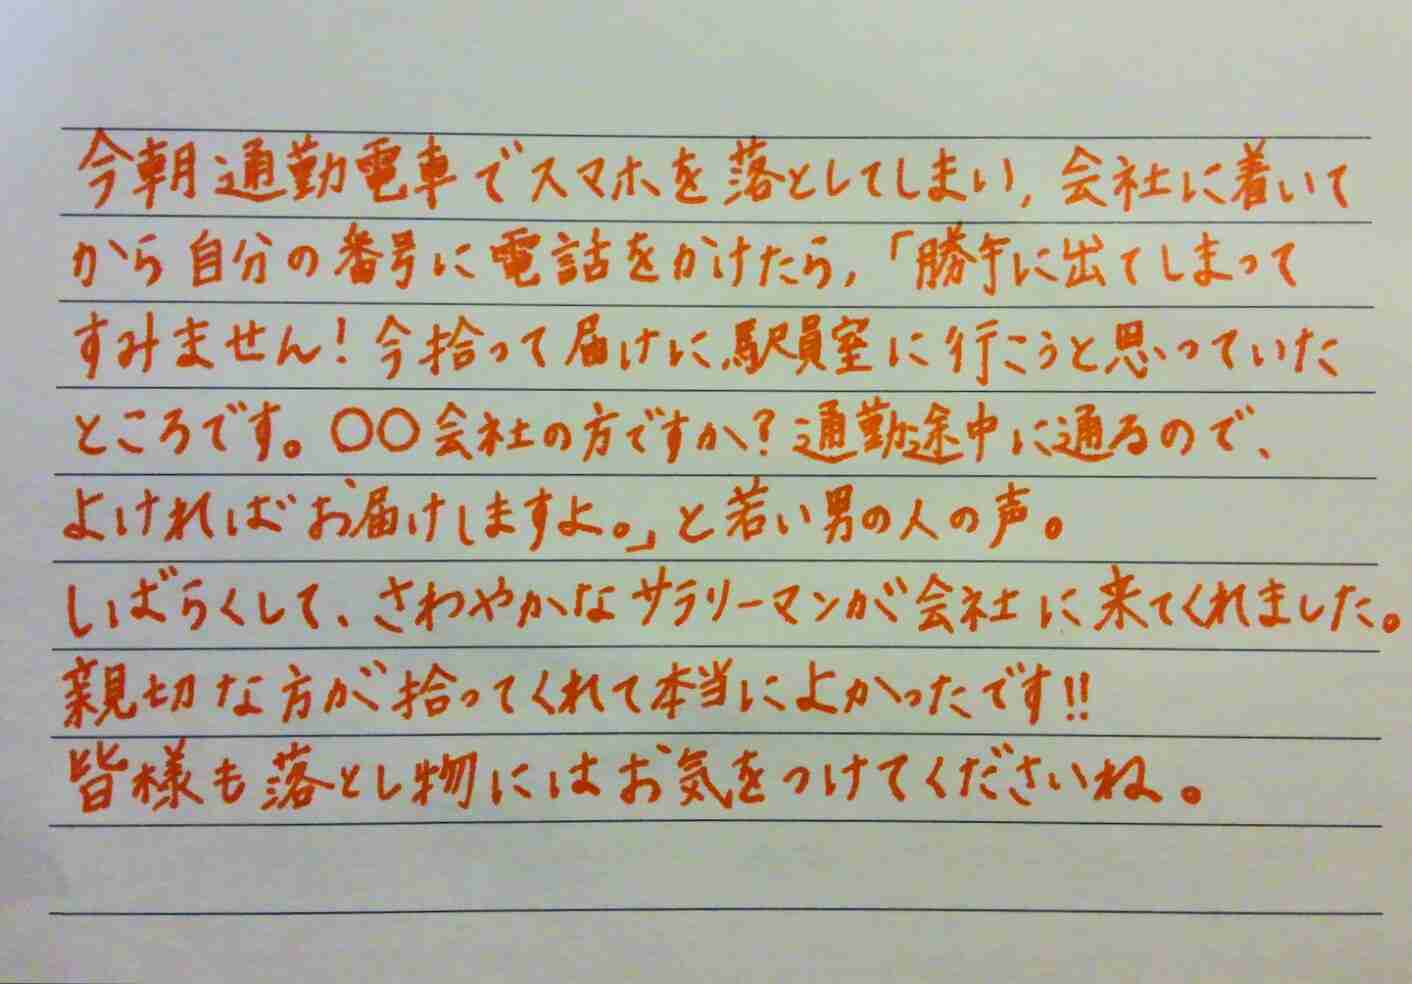 今朝通勤電車でスマホを落としてしまい，会社に着いて
から自分の番号に電話をかけたら，「勝手に出てしまって
すみません！今拾って届けに駅員室に行こうと思っていた
ところです。〇〇会社の方ですか？通勤途中に通るので、
よければお届けしますよ。」と若い男の人の声。
しばらくして、さわやかなサラリーマンが会社に来てくれました。
親切な方が拾ってくれて本当によかったです!!
皆様も落とし物にはお気をつけてくださいね。